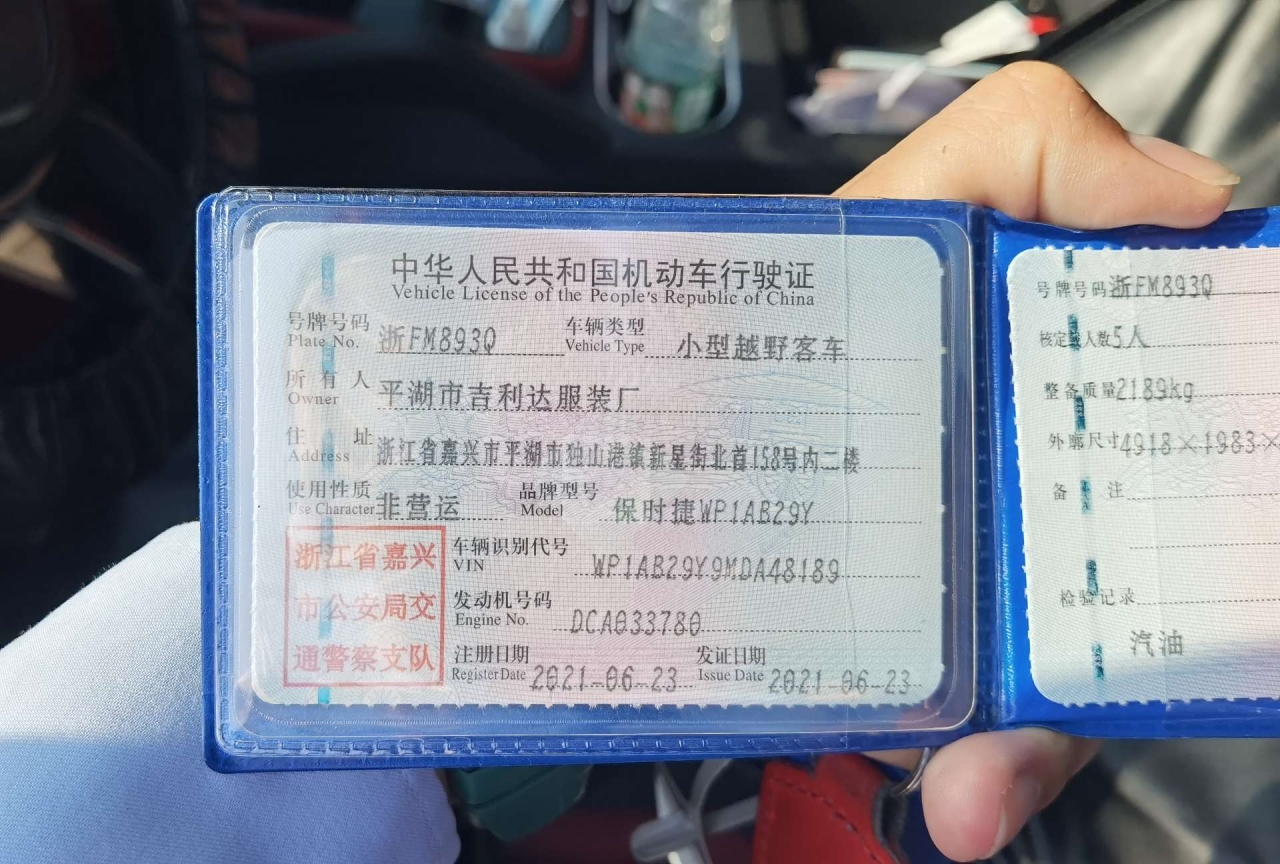 中华人民共和国机动车行驶证
Vehicle License of the People's Republic of China
号牌号码 浙FM893Q 车辆类型 小型越野客车
Plate No. Vehicle Type
所有人 平湖市吉利达服装厂
Owner
住址 浙江省嘉兴市平湖市独山港镇新星街北首158号内二楼
Address
使用性质 非营运 品牌型号 保时捷WP1AB29Y
Use Character Model
浙江省嘉兴
市公安局交
通警察支队
车辆识别代号 WP1AB29Y9MDA48189
VIN
发动机号码 DCA033780
Engine No.
注册日期 2021-06-23 发证日期 2021-06-23
Register Date Issue Date
号牌号码 浙FM893Q
核定载人数 5人
整备质量 2189kg
外廓尺寸 4918×1983×
备注
检验记录
汽油